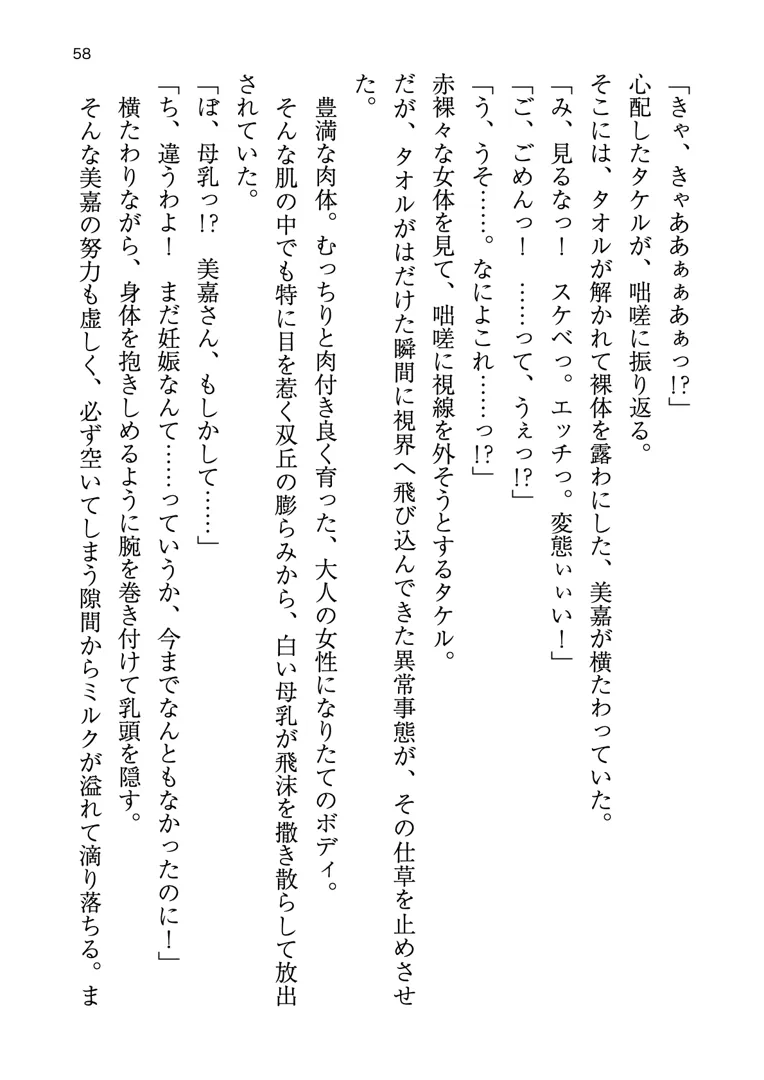 58
「きゃ、きゃああぁぁあぁっ!?」
心配したタケルが、咄嗟に振り返る。
そこには、タオルが解かれて裸体を露わにした、美嘉が横たわっていた。
「み、見るなっ！　スケベっ。エッチっ。変態ぃぃい！」
「ご、ごめんっ！　……って、うぇっ!?」
「う、うそ……。なによこれ……っ!?」
赤裸々な女体を見て、咄嗟に視線を外そうとするタケル。
だが、タオルがはだけた瞬間に視界へ飛び込んできた異常事態が、その仕草を止めさせ
た。
豊満な肉体。むっちりと肉付き良く育った、大人の女性になりたてのボディ。
そんな肌の中でも特に目を惹く双丘の膨らみから、白い母乳が飛沫を撒き散らして放出
されていた。
「ぼ、母乳っ!?　美嘉さん、もしかして……」
「ち、違うわよ！　まだ妊娠なんて……っていうか、今までなんともなかったのに！」
横たわりながら、身体を抱きしめるように腕を巻き付けて乳頭を隠す。
そんな美嘉の努力も虚しく、必ず空いてしまう隙間からミルクが溢れて滴り落ちる。ま